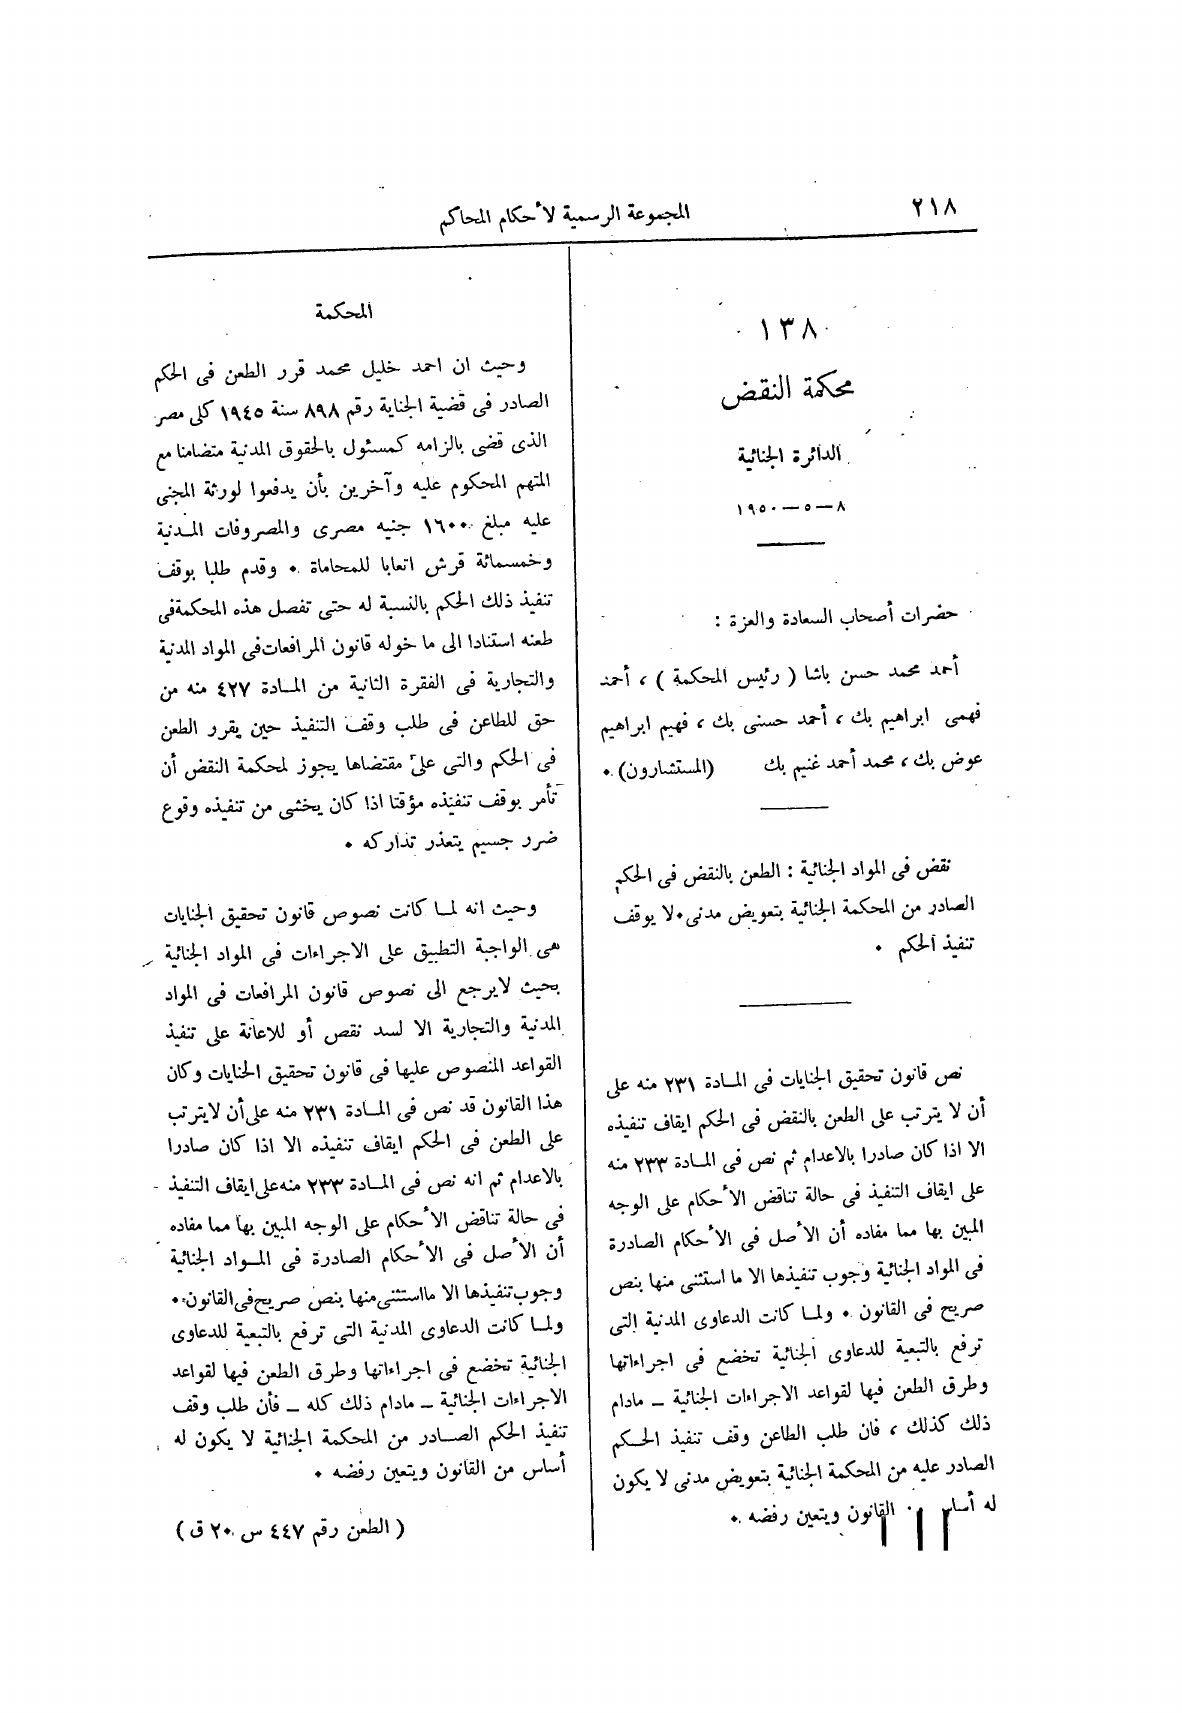 ٢١٨
المجموعة الرسمية لأحكام المحاكم
١٣٨
محكمة النقض
الدائرة الجنائية
٨ — ٥ — ١٩٥٠
حضرات أصحاب السعادة والعزة :
أحمد محمد حسن باشا ( رئيس المحكمة ) ، أحمد
فهمى ابراهيم بك ، أحمد حسنى بك ، فهيم ابراهيم
عوض بك ، محمد أحمد غنيم بك (المستشارون) .
نقض فى المواد الجنائية : الطعن بالنقض فى الحكم
الصادر من المحكمة الجنائية بتعويض مدنى . لا يوقف
تنفيذ الحكم .
نص قانون تحقيق الجنايات فى المادة ٢٣١ منه على
أن لا يترتب على الطعن بالنقض فى الحكم ايقاف تنفيذه
الا اذا كان صادرا بالاعدام ثم نص فى المادة ٢٣٣ منه
على ايقاف التنفيذ فى حالة تناقض الأحكام على الوجه
المبين بها مما مفاده أن الأصل فى الأحكام الصادرة
فى المواد الجنائية وجوب تنفيذها الا ما استثنى منها بنص
صريح فى القانون . ولما كانت الدعاوى المدنية التى
ترفع بالتبعية للدعاوى الجنائية تخضع فى اجراءاتها
وطرق الطعن فيها لقواعد الاجراءات الجنائية – مادام
ذلك كذلك ، فان طلب الطاعن وقف تنفيذ الحكم
الصادر عليه من المحكمة الجنائية بتعويض مدنى لا يكون
له أساس القانون ويتعين رفضه .
المحكمة
وحيث ان احمد خليل محمد قرر الطعن فى الحكم
الصادر فى قضية الجناية رقم ٨٩٨ سنة ١٩٤٥ كلى مصر
الذى قضى بالزامه كمسئول بالحقوق المدنية متضامنا مع
المتهم المحكوم عليه وآخرين بأن يدفعوا لورثة المجنى
عليه مبلغ ١٦٠٠ جنيه مصرى والمصروفات المدنية
وخمسمائة قرش اتعابا للمحاماة . وقدم طلبا بوقف
تنفيذ ذلك الحكم بالنسبة له حتى تفصل هذه المحكمة فى
طعنه استنادا الى ما خوله قانون المرافعات فى المواد المدنية
والتجارية فى الفقرة الثانية من المادة ٤٢٧ منه من
حق للطاعن فى طلب وقف التنفيذ حين يقرر الطعن
فى الحكم والتى على مقتضاها يجوز لمحكمة النقض أن
تأمر بوقف تنفيذه مؤقتا اذا كان يخشى من تنفيذه وقوع
ضرر جسيم يتعذر تداركه .
وحيث انه لما كانت نصوص قانون تحقيق الجنايات
هى الواجبة التطبيق على الاجراءات فى المواد الجنائية
بحيث لايرجع الى نصوص قانون المرافعات فى المواد
المدنية والتجارية الا لسد نقص أو للاعانة على تنفيذ
القواعد المنصوص عليها فى قانون تحقيق الجنايات وكان
هذا القانون قد نص فى المادة ٢٣١ منه على أن لايترتب
على الطعن فى الحكم ايقاف تنفيذه الا اذا كان صادرا
بالاعدام ثم انه نص فى المادة ٢٣٣ منه على ايقاف التنفيذ
فى حالة تناقض الأحكام على الوجه المبين بها مما مفاده
أن الأصل فى الأحكام الصادرة فى المواد الجنائية
وجوب تنفيذها الا مااستثنى منها بنص صريح فى القانون .
ولما كانت الدعاوى المدنية التى ترفع بالتبعية للدعاوى
الجنائية تخضع فى اجراءاتها وطرق الطعن فيها لقواعد
الاجراءات الجنائية – مادام ذلك كله – فأن طلب وقف
تنفيذ الحكم الصادر من المحكمة الجنائية لا يكون له
أساس من القانون ويتعين رفضه .
( الطعن رقم ٤٤٧ س ٢٠ ق )